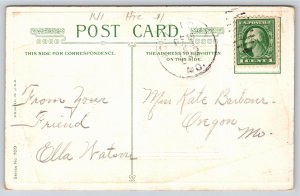 POST CARD.
THIS SIDE FOR CORRESPONDENCE.
THE ADDRESS TO BE WRITTEN ON THIS SIDE.
MO.
1 CENT 1
From Your
Friend
Ella Watson
Miss Kate Barbour
Oregon
Mo.